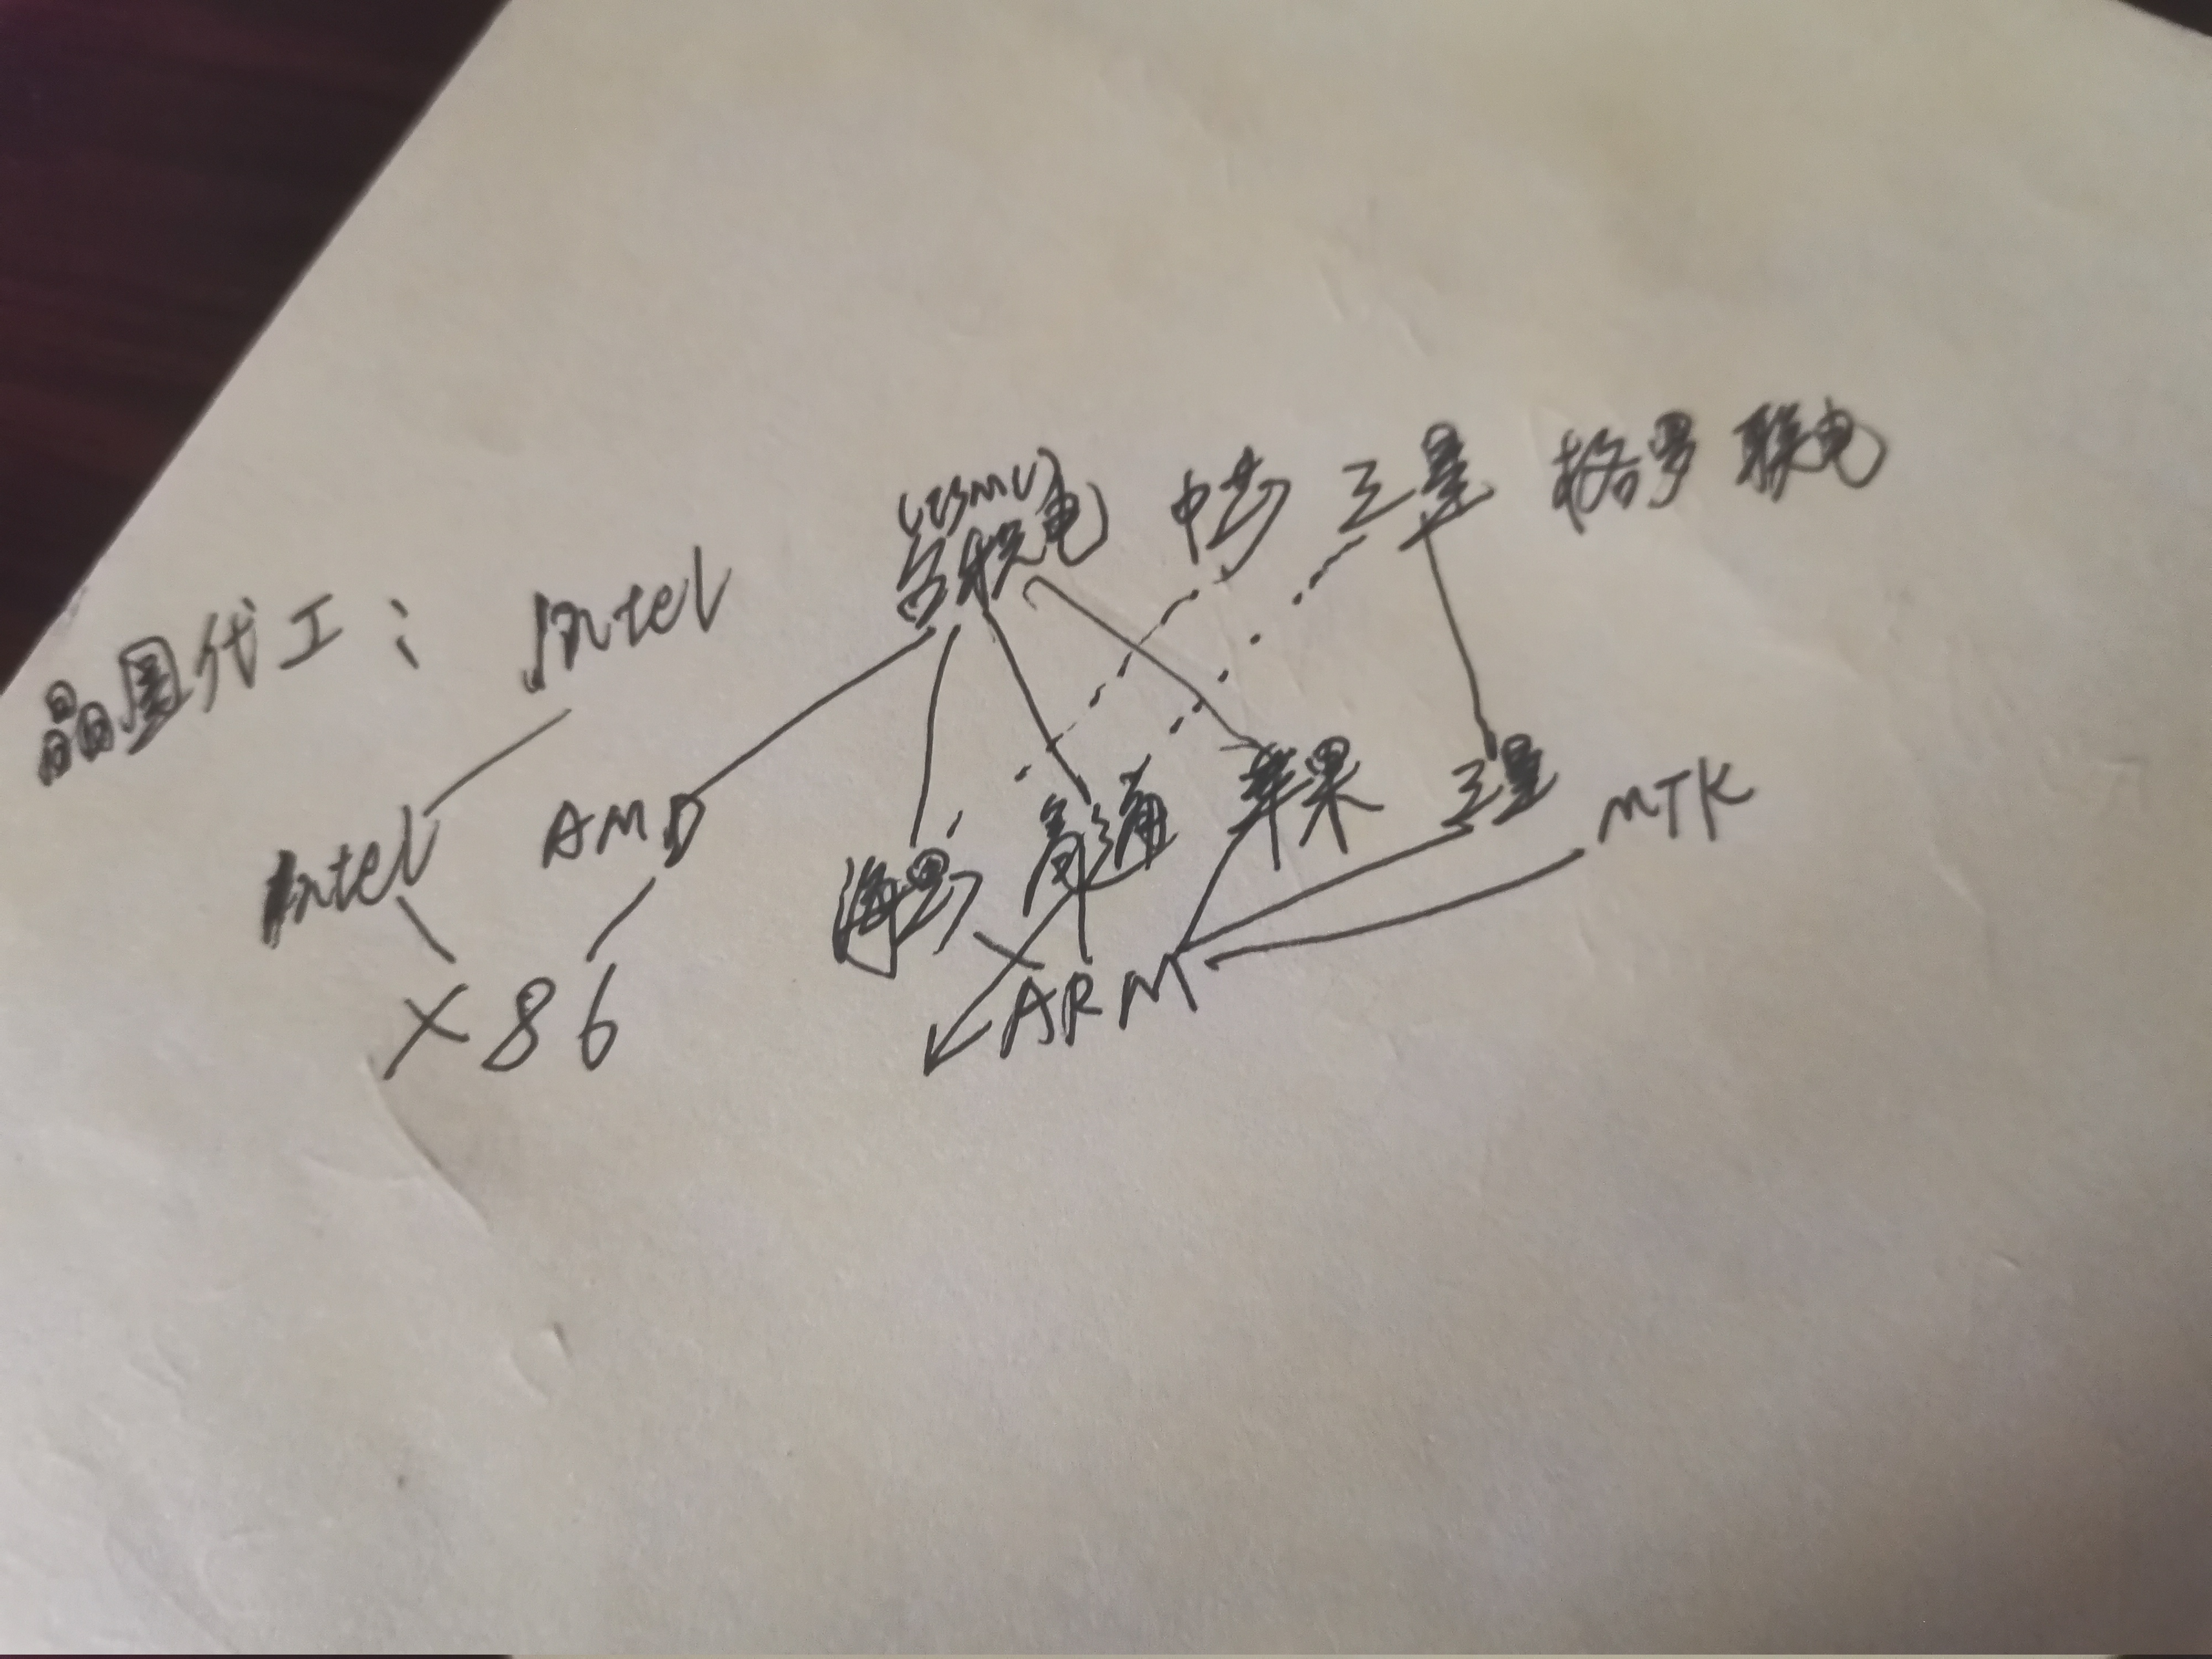 (TSMC)
晶圆代工： Intel 台积电 中芯 三星 格罗 联电
Intel AMD 海思 高通 苹果 三星 MTK
X86 ARM